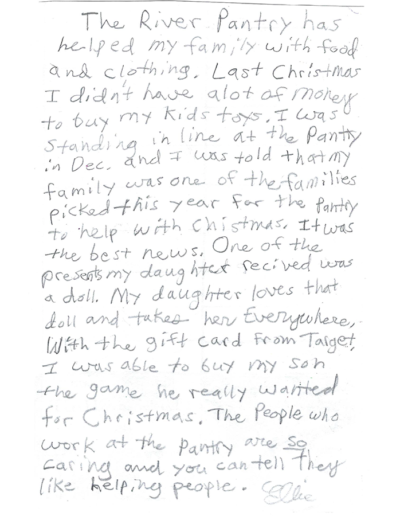 The River Pantry has
helped my family with food
and clothing. Last Christmas
I didn't have alot of money
to buy my kids toys. I was
standing in line at the Pantry
in Dec. and I was told that my
family was one of the families
picked this year for the Pantry
to help with Chistmas. It was
the best news. One of the
presents my daughter recived was
a doll. My daughter loves that
doll and takes her Everywhere.
With the gift card from Target,
I was able to buy my son
the game he really wanted
for Christmas. The People who
work at the pantry are so
caring and you can tell They
like helping people. Ellie